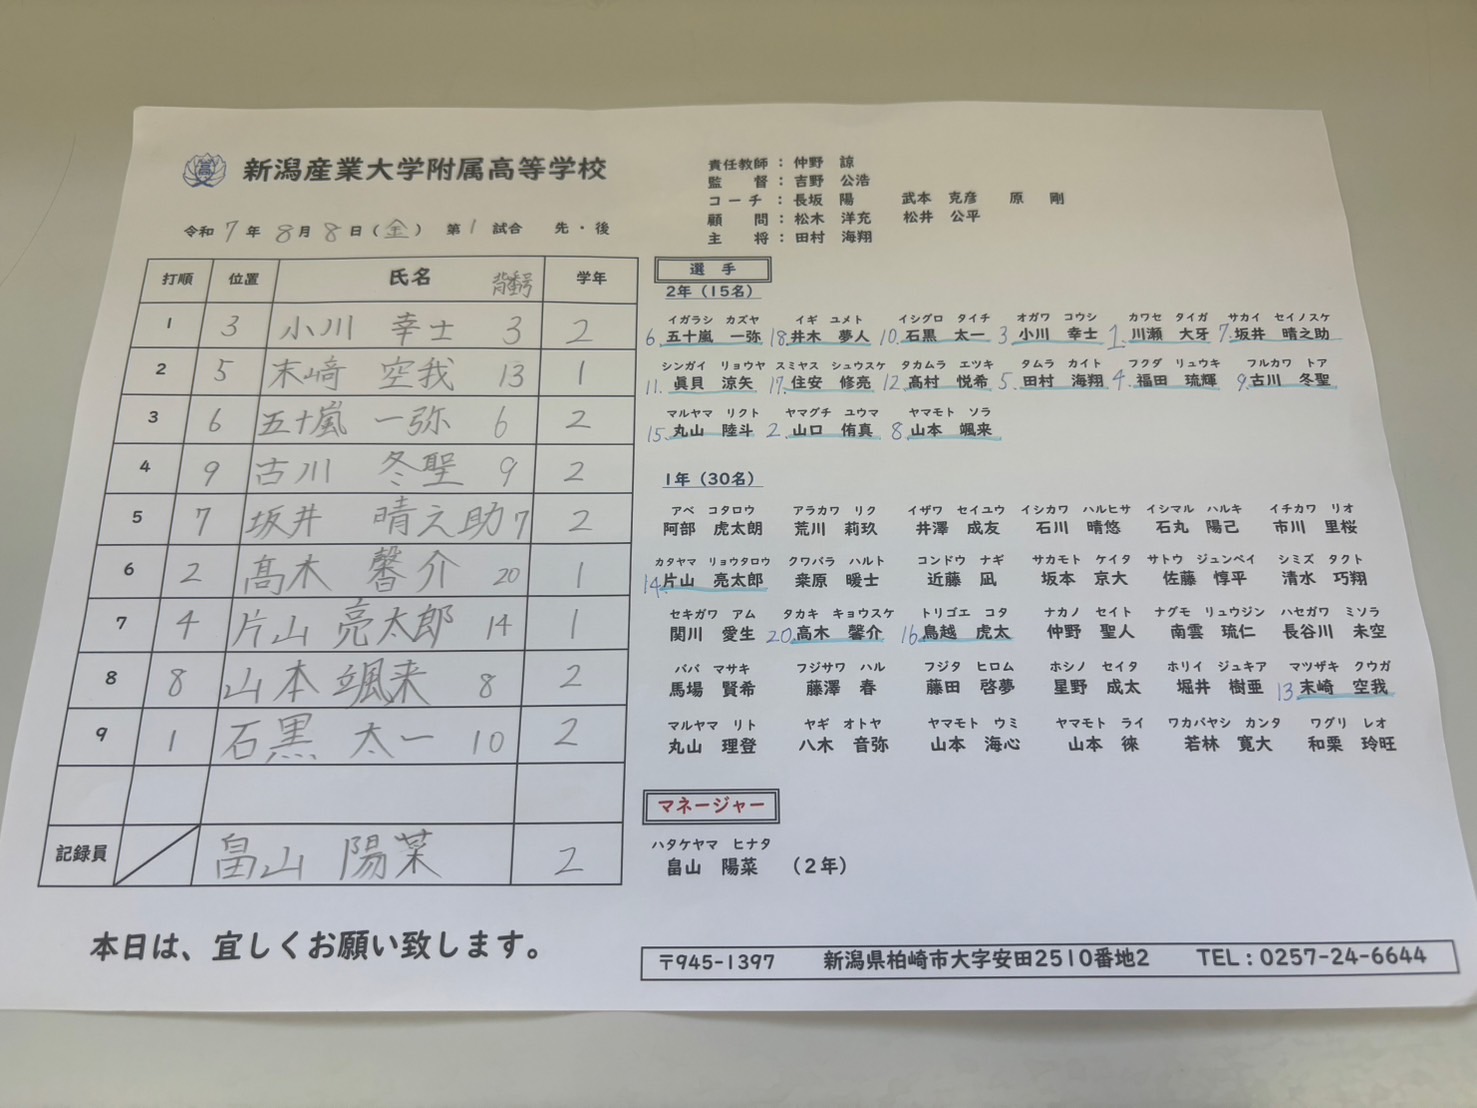 新潟産業大学附属高等学校
令和 7 年 8 月 8 日(金) 第 1 試合 先・後
責任教師：仲野 諒
監 督：吉野 公浩
コーチ：長坂 陽 武本 克彦 原 剛
顧 問：松木 洋充 松井 公平
主 将：田村 海翔
打順 位置 氏名 背番号 学年
1 3 小川 幸士 3 2
2 5 末﨑 空我 13 1
3 6 五十嵐 一弥 6 2
4 9 古川 冬聖 9 2
5 7 坂井 晴之助 7 2
6 2 髙木 馨介 20 1
7 4 片山 亮太郎 14 1
8 8 山本 颯来 8 2
9 1 石黒 太一 10 2
記録員 畠山 陽菜 2
本日は、宜しくお願い致します。
選 手
2年（15名）
イガラシ カズヤ イギ ユメト イシグロ タイチ オガワ コウシ カワセ タイガ サカイ セイノスケ
6. 五十嵐 一弥 18. 井木 夢人 10. 石黒 太一 3. 小川 幸士 1. 川瀬 大牙 7. 坂井 晴之助
シンガイ リョウヤ スミヤス シュウスケ タカムラ エツキ タムラ カイト フクダ リュウキ フルカワ トア
11. 眞貝 涼矢 17. 住安 修亮 12. 高村 悦希 5. 田村 海翔 4. 福田 琉輝 9. 古川 冬聖
マルヤマ リクト ヤマグチ ユウマ ヤマモト ソラ
15. 丸山 陸斗 2. 山口 侑真 8. 山本 颯来
1年（30名）
アベ コタロウ アラカワ リク イザワ セイユウ イシカワ ハルヒサ イシマル ハルキ イチカワ リオ
阿部 虎太朗 荒川 莉玖 井澤 成友 石川 晴悠 石丸 陽己 市川 里桜
カタヤマ リョウタロウ クワバラ ハルト コンドウ ナギ サカモト ケイタ サトウ ジュンペイ シミズ タクト
14. 片山 亮太郎 桒原 暖士 近藤 凪 坂本 京大 佐藤 惇平 清水 巧翔
セキガワ アム タカキ キョウスケ トリゴエ コタ ナカノ セイト ナグモ リュウジン ハセガワ ミソラ
関川 愛生 20. 高木 馨介 16. 鳥越 虎太 仲野 聖人 南雲 琉仁 長谷川 未空
ババ マサキ フジサワ ハル フジタ ヒロム ホシノ セイタ ホリイ ジュキア マツザキ クウガ
馬場 賢希 藤澤 春 藤田 啓夢 星野 成太 堀井 樹亜 13. 末崎 空我
マルヤマ リト ヤギ オトヤ ヤマモト ウミ ヤマモト ライ ワカバヤシ カンタ ワグリ レオ
丸山 理登 八木 音弥 山本 海心 山本 徠 若林 寛大 和栗 玲旺
マネージャー
ハタケヤマ ヒナタ
畠山 陽菜 （2年）
〒945-1397 新潟県柏崎市大字安田2510番地2 TEL：0257-24-6644